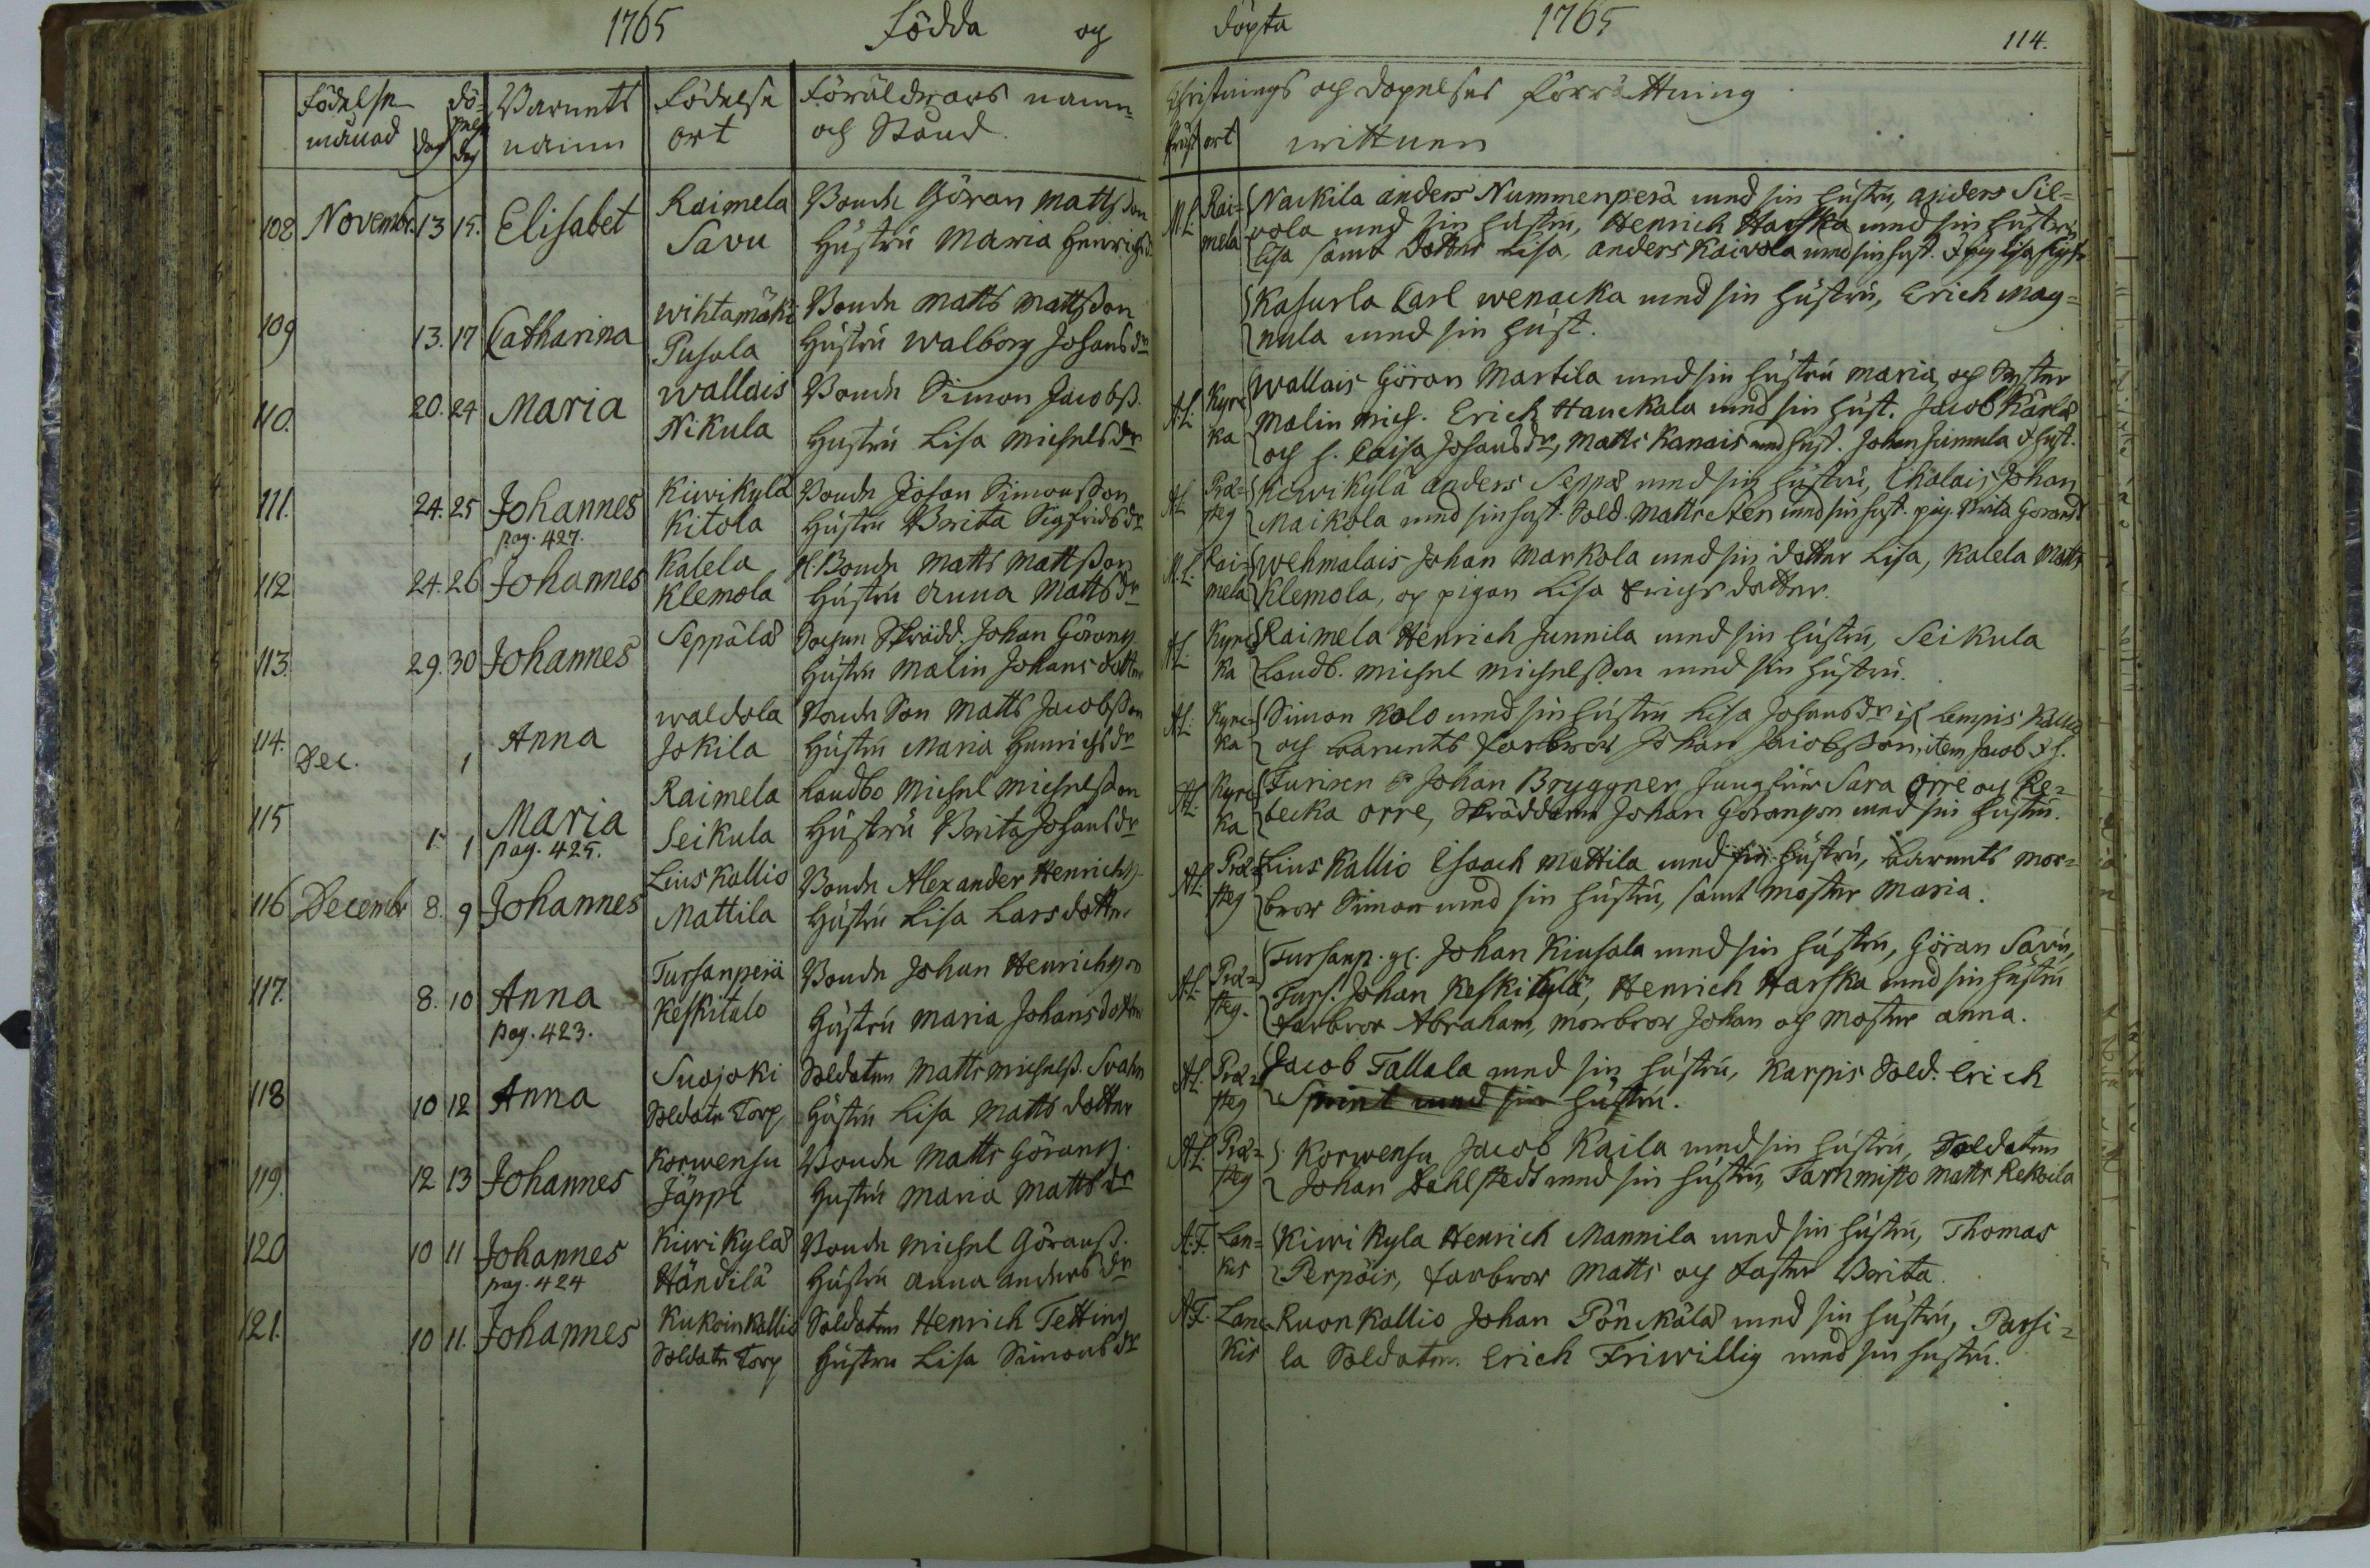 1765 Födda og
Födelse månad dag
Döpelse dag
Barnets namn
Födelse ort
Föräldrars namn och Stånd.
108 Novembr. 13 15. Elisabet Raimela Bonde Göran Mattsson
Savu Hustru Maria Henrichsd.
109 13. 17 Catharina Wihtamäki Bonde Matts Mattsson
Pusala Hustru Walborg Johansdr
110. 20. 24 Maria Wallais Bonde Simon Jacobss.
Nikula Hustru Lisa Michelsdr
111. 24. 25 Johannes Kiwikylä Bonde Johan Simonsson
pag. 427. Kitola Hustru Brita Sigfridsdr
112 24. 26 Johannes Kalela Bonde Matts Mattsson
Klemola Hustru Anna Mattsdr
113. 29. 30 Johannes Seppälä Sochne Skrädd. Johan Görans.
Hustru Malin Johans dotter
114. Dec. 1 Anna Waldola Bonde Son Matts Jacobsson
Jokila Hustru Maria Henrichsdr
115 1. 1 Maria Raimela Landbo Michel Michelsson
pag. 425. Seikula Hustru Brita Johansdr
116 Decembr 8. 9 Johannes Liuskallio Bonde Alexander Henrichs.
Mattila Hustru Lisa Larsdotter
117. 8. 10 Anna Tursanperä Bonde Johan Henrichsson
pag. 423. Keskitalo Hustru Maria Johansdotter
118 10 12 Anna Suojoki Soldaten Matts Michelss. Svahn
Soldate Torp Hustru Lisa Matts dotter
119. 12 13 Johannes Korwensu Bonde Matts Görans.
Jäppe Hustru Maria Mattsdr
120 10 11 Johannes Kiwikylä Bonde Michel Göranss.
pag. 424 Händilä Hustru Anna Andersdr
121. 10 11. Johannes Kukoinkallio Soldaten Henrich Tetting
Soldate Torp Hustru Lisa Simonsdr
döpta 1765
114.
Christnings og döpelses förrättning
ort wittnen
M.L. Raimela Nackila Anders Nummenperä med sin hustru, Anders Sil=
vola med sin hustru, Henrich Harska med sin hustru
Lisa samt dotter Lisa, Anders Kaivola med sin hust.
Kasurla Carl Wenacka med sin hustru, Erich Mag=
nula med sin hust.
A.L. Kyrcka Wallais Göran Martila med sin hustru Maria, og Syster
Malin Mich. Erich Hauckala med sin hust. Jacob Kärlä
og h. Caisa Johansdr, Matts Kanais med hust. Johan Junnula & hust.
A.L. Prästeg Kiwikylä Anders Seppä med sin hustru, Johan
Maikola med sin hust. Sold. Matts Aen med sin hust. pig. Brita Göransd
M.L. Raimela Wehmalais Johan Markola med sin dotter Lisa, Kalela Matts
Klemola, og pigan Lisa Erichs dotter.
A.L. Kyrcka Raimela Henrich Junnila med sin hustru, Seikula
Landb. Michel Michelsson med sin hustru.
A.L. Kyrcka Simon Kolo med sin hustru Lisa Johansdr
og barnets farbror Johan Jacobsson, item Jacob & h.
A.L. Kyrcka Johan Bryggner Jungfrur Sara Orre og Re=
becka Orre, Skräddaren Johan Göransson med sin hustru.
A.L. Prästeg Liuskallio Isaach Mattila med sin hustru, barnets mor=
bror Simon med sin hustru, samt moster Maria.
A.L. Prästeg. Tursanp. gl. Johan Kiusala med sin hustru, Göran Savu,
Turs. Johan Keskikylä, Henrich Harska med sin hustru
farbror Abraham, morbror Johan og moster Anna.
A.L. Prästeg Jacob Tallala med sin hustru, Karpis Sold. Erich
Sprint med sin hustru.
A.L. Prästeg Korwensu Jacob Kaila med sin hustru, Soldaten
Johan Dahlstedt med sin hustru, Tammisto Matts Rekoila
A.F. Lanckis Kiwikyla Henrich Mannila med sin hustru, Thomas
Perpöis, farbror Matts og faster Brita.
A.F. Lanckis Ruonkallio Johan Pönckälä med sin hustru, Passi=
la Soldaten Erich Friwillig med sin hustru.